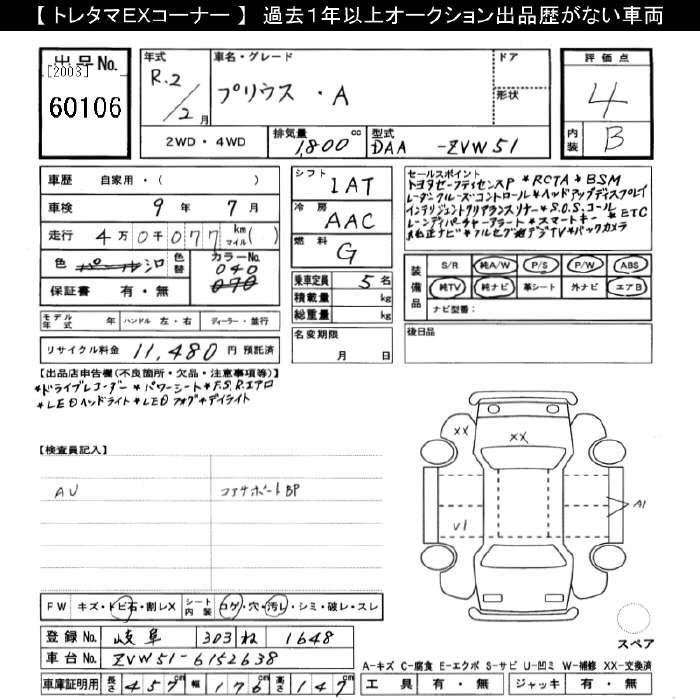 【トレタマEXコーナー】 過去1年以上オークション出品歴がない車両
出品No. [2003] 60106
年式 R.2/2月
車名・グレード プリウス ・ A
ドア
形状
評価点 4
内装 B
2WD・4WD
排気量 1,800cc
型式 DAA-ZVW51
車歴 自家用・( )
車検 9年 7月
走行 4万0千077 km マイル( )
色 パール シロ 色替 カラーNo. 040 070
保証書 有・無
シフト IAT
冷房 AAC
燃料 G
乗車定員 5名
積載量 kg
総重量 kg
名変期限 月 日
セールスポイント
トヨタセーフティセンスP *RCTA *BSM
レーダークルーズコントロール *ヘッドアップディスプレイ
インテリジェントクリアランスソナー *S.O.S.コール
レーンディパーチャーアラート *スマートキー *ETC
*純正ナビ *フルセグ地デジTV *バックカメラ
装備品 S/R 純A/W P/S P/W ABS
純TV 純ナビ 革シート 外ナビ エアB
ナビ型番:
後日品
モデル年式 年 ハンドル 左・右 ディーラー・並行
リサイクル料金 11,480円 預託済
【出品店申告欄(不良箇所・欠品・注意事項等)】
*ドライブレコーダー *パワーシート *F.S.R.エアロ
*LEDヘッドライト *LEDフォグ *デイライト
【検査員記入】
AU
コアサポートBP
XX
XX
U1
A1
FW キズ・トビ石・割レX シート内装 コゲ・穴・汚レ・シミ・破レ・スレ
スペア
登録No. 岐阜 303 ね 1648
車台No. ZVW51-6152638
A-キズ C-腐食 E-エクボ S-サビ U-凹ミ W-補修 XX-交換済
車庫証明用 長さ 457cm 幅 176cm 高さ 147cm
工具 有・無 ジャッキ 有・無